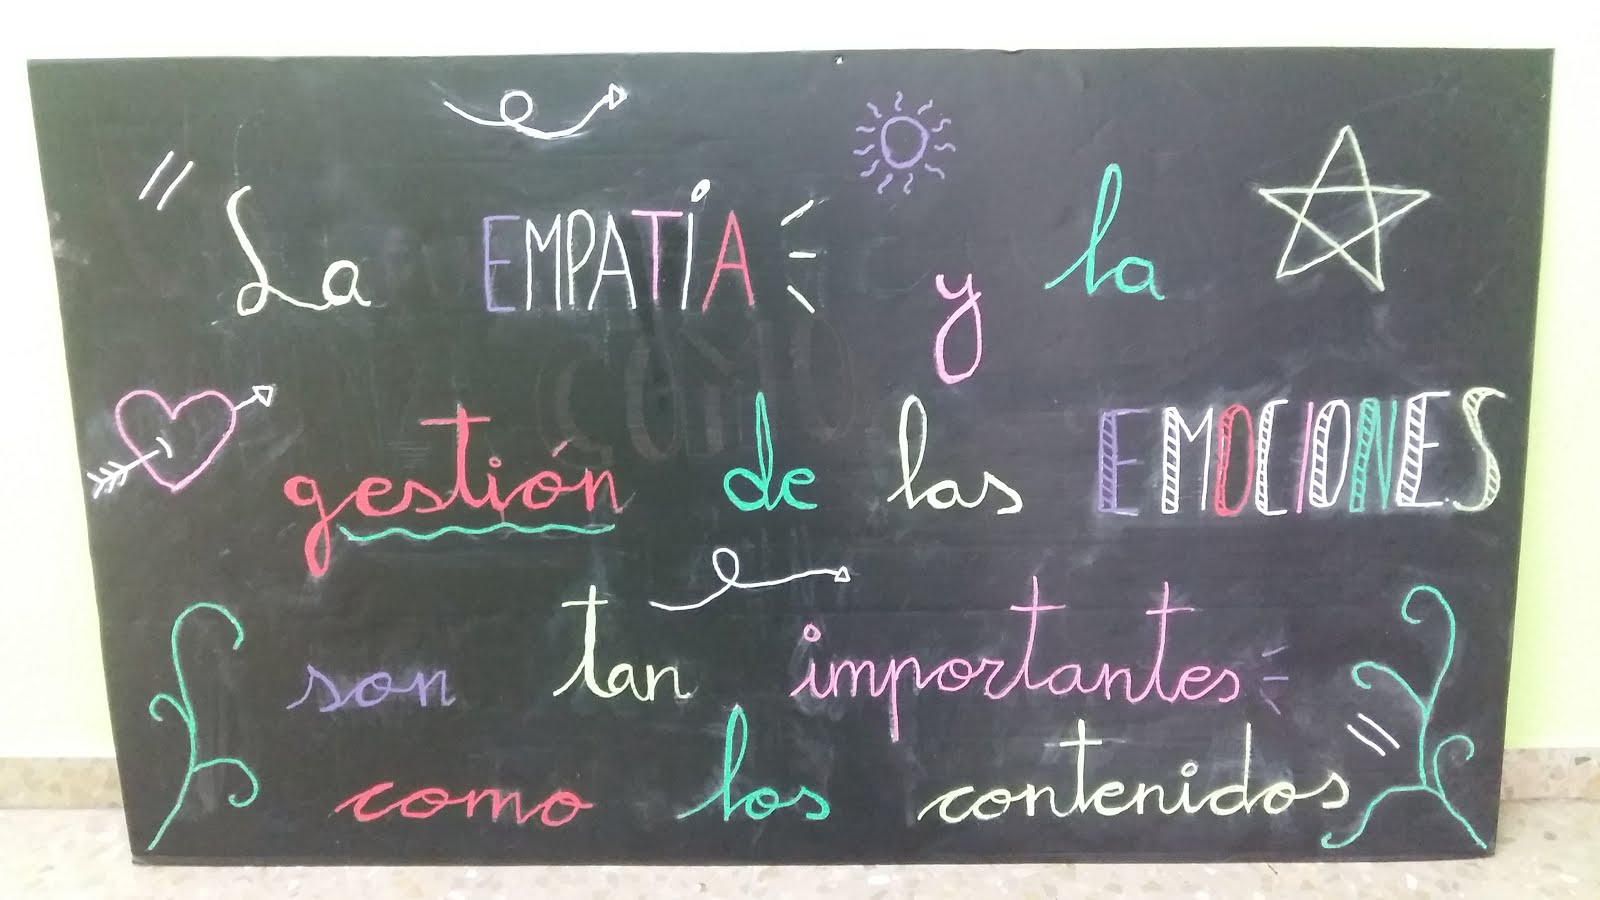 La EMPATÍA y la
gestión de las EMOCIONES
son tan importantes
como los contenidos